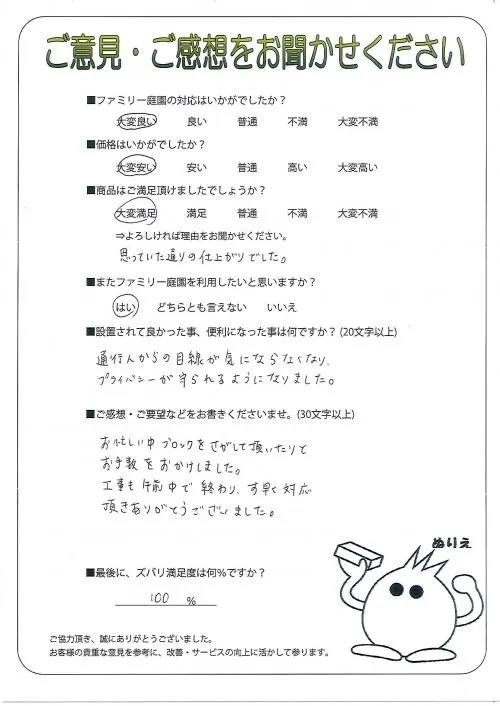 ご意見・ご感想をお聞かせください
■ファミリー庭園の対応はいかがでしたか？
大変良い 良い 普通 不満 大変不満
■価格はいかがでしたか？
大変安い 安い 普通 高い 大変高い
■商品はご満足頂けましたでしょうか？
大変満足 満足 普通 不満 大変不満
⇒よろしければ理由をお聞かせください。
思っていた通りの仕上がりでした。
■またファミリー庭園を利用したいと思いますか？
はい どちらとも言えない いいえ
■設置されて良かった事、便利になった事は何ですか？(20文字以上)
通行人からの目線が気にならなくなり、
プライバシーが守られるようになりました。
■ご感想・ご要望などをお書きくださいませ。(30文字以上)
お忙しい中ブロックをさがして頂いたりと
お手数をおかけしました。
工事も午前中で終わり、す早く対応
頂きありがとうございました。
ぬりえ
■最後に、ズバリ満足度は何％ですか？
100 ％
ご協力頂き、誠にありがとうございました。
お客様の貴重な意見を参考に、改善・サービスの向上に活かして参ります。